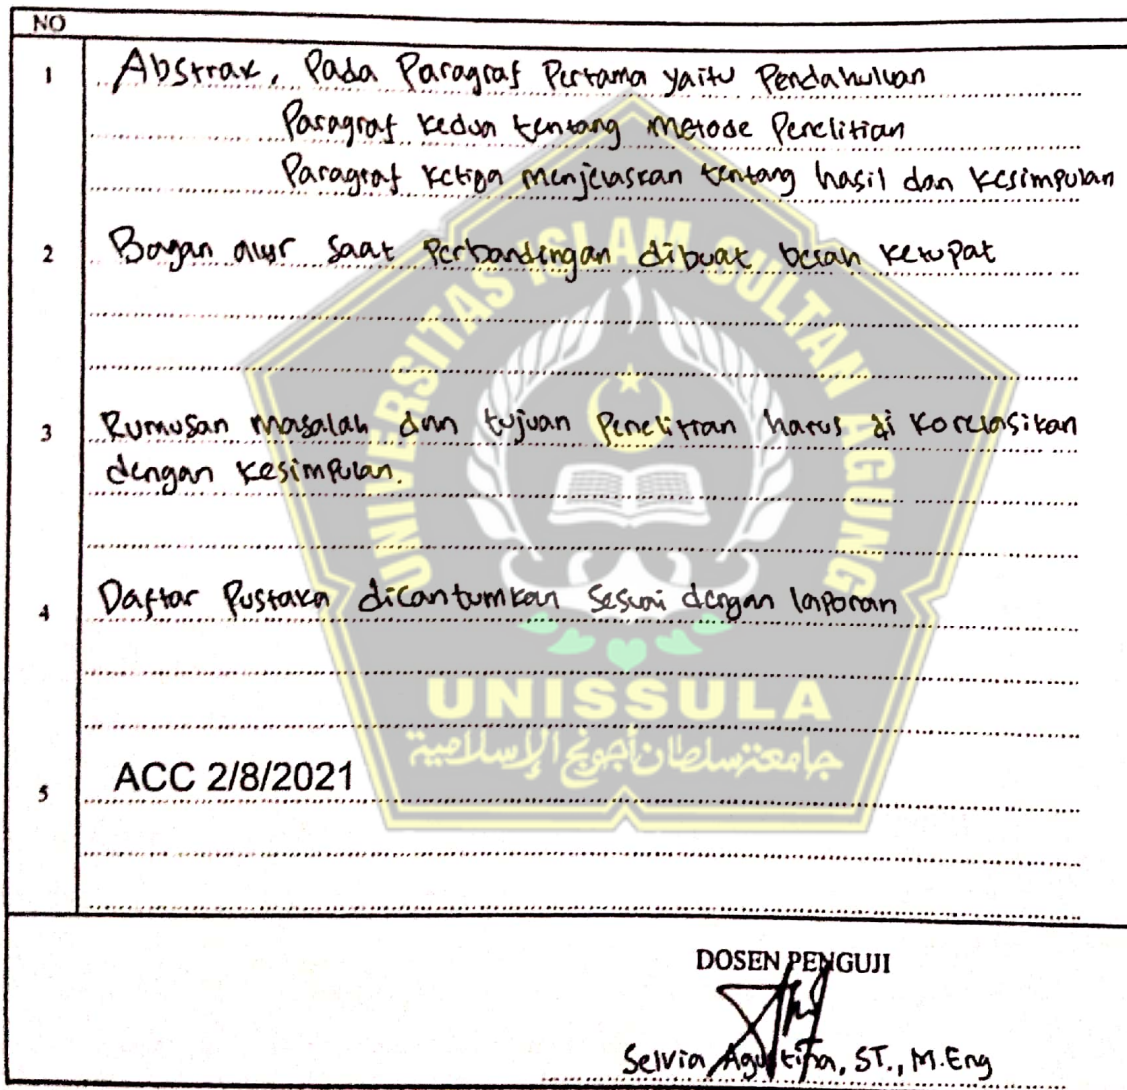 NO
1 Abstrak, Pada Paragraf Pertama yaitu Pendahuluan
Paragraf Kedua tentang metode Penelitian
Paragraf Ketiga menjelaskan tentang hasil dan Kesimpulan
2 Bagan alur saat Perbandingan dibuat belah Ketupat
3 Rumusan masalah dan tujuan Penelitian harus di Korelasikan
dengan Kesimpulan.
4 Daftar Pustaka dicantumkan Sesuai dengan laporan
5 ACC 2/8/2021
UNIVERSITAS ISLAM SULTAN AGUNG
UNISSULA
جامعتنسلطان أجونج الإسلامية
DOSEN PENGUJI
Selvia Agustina, ST., M.Eng